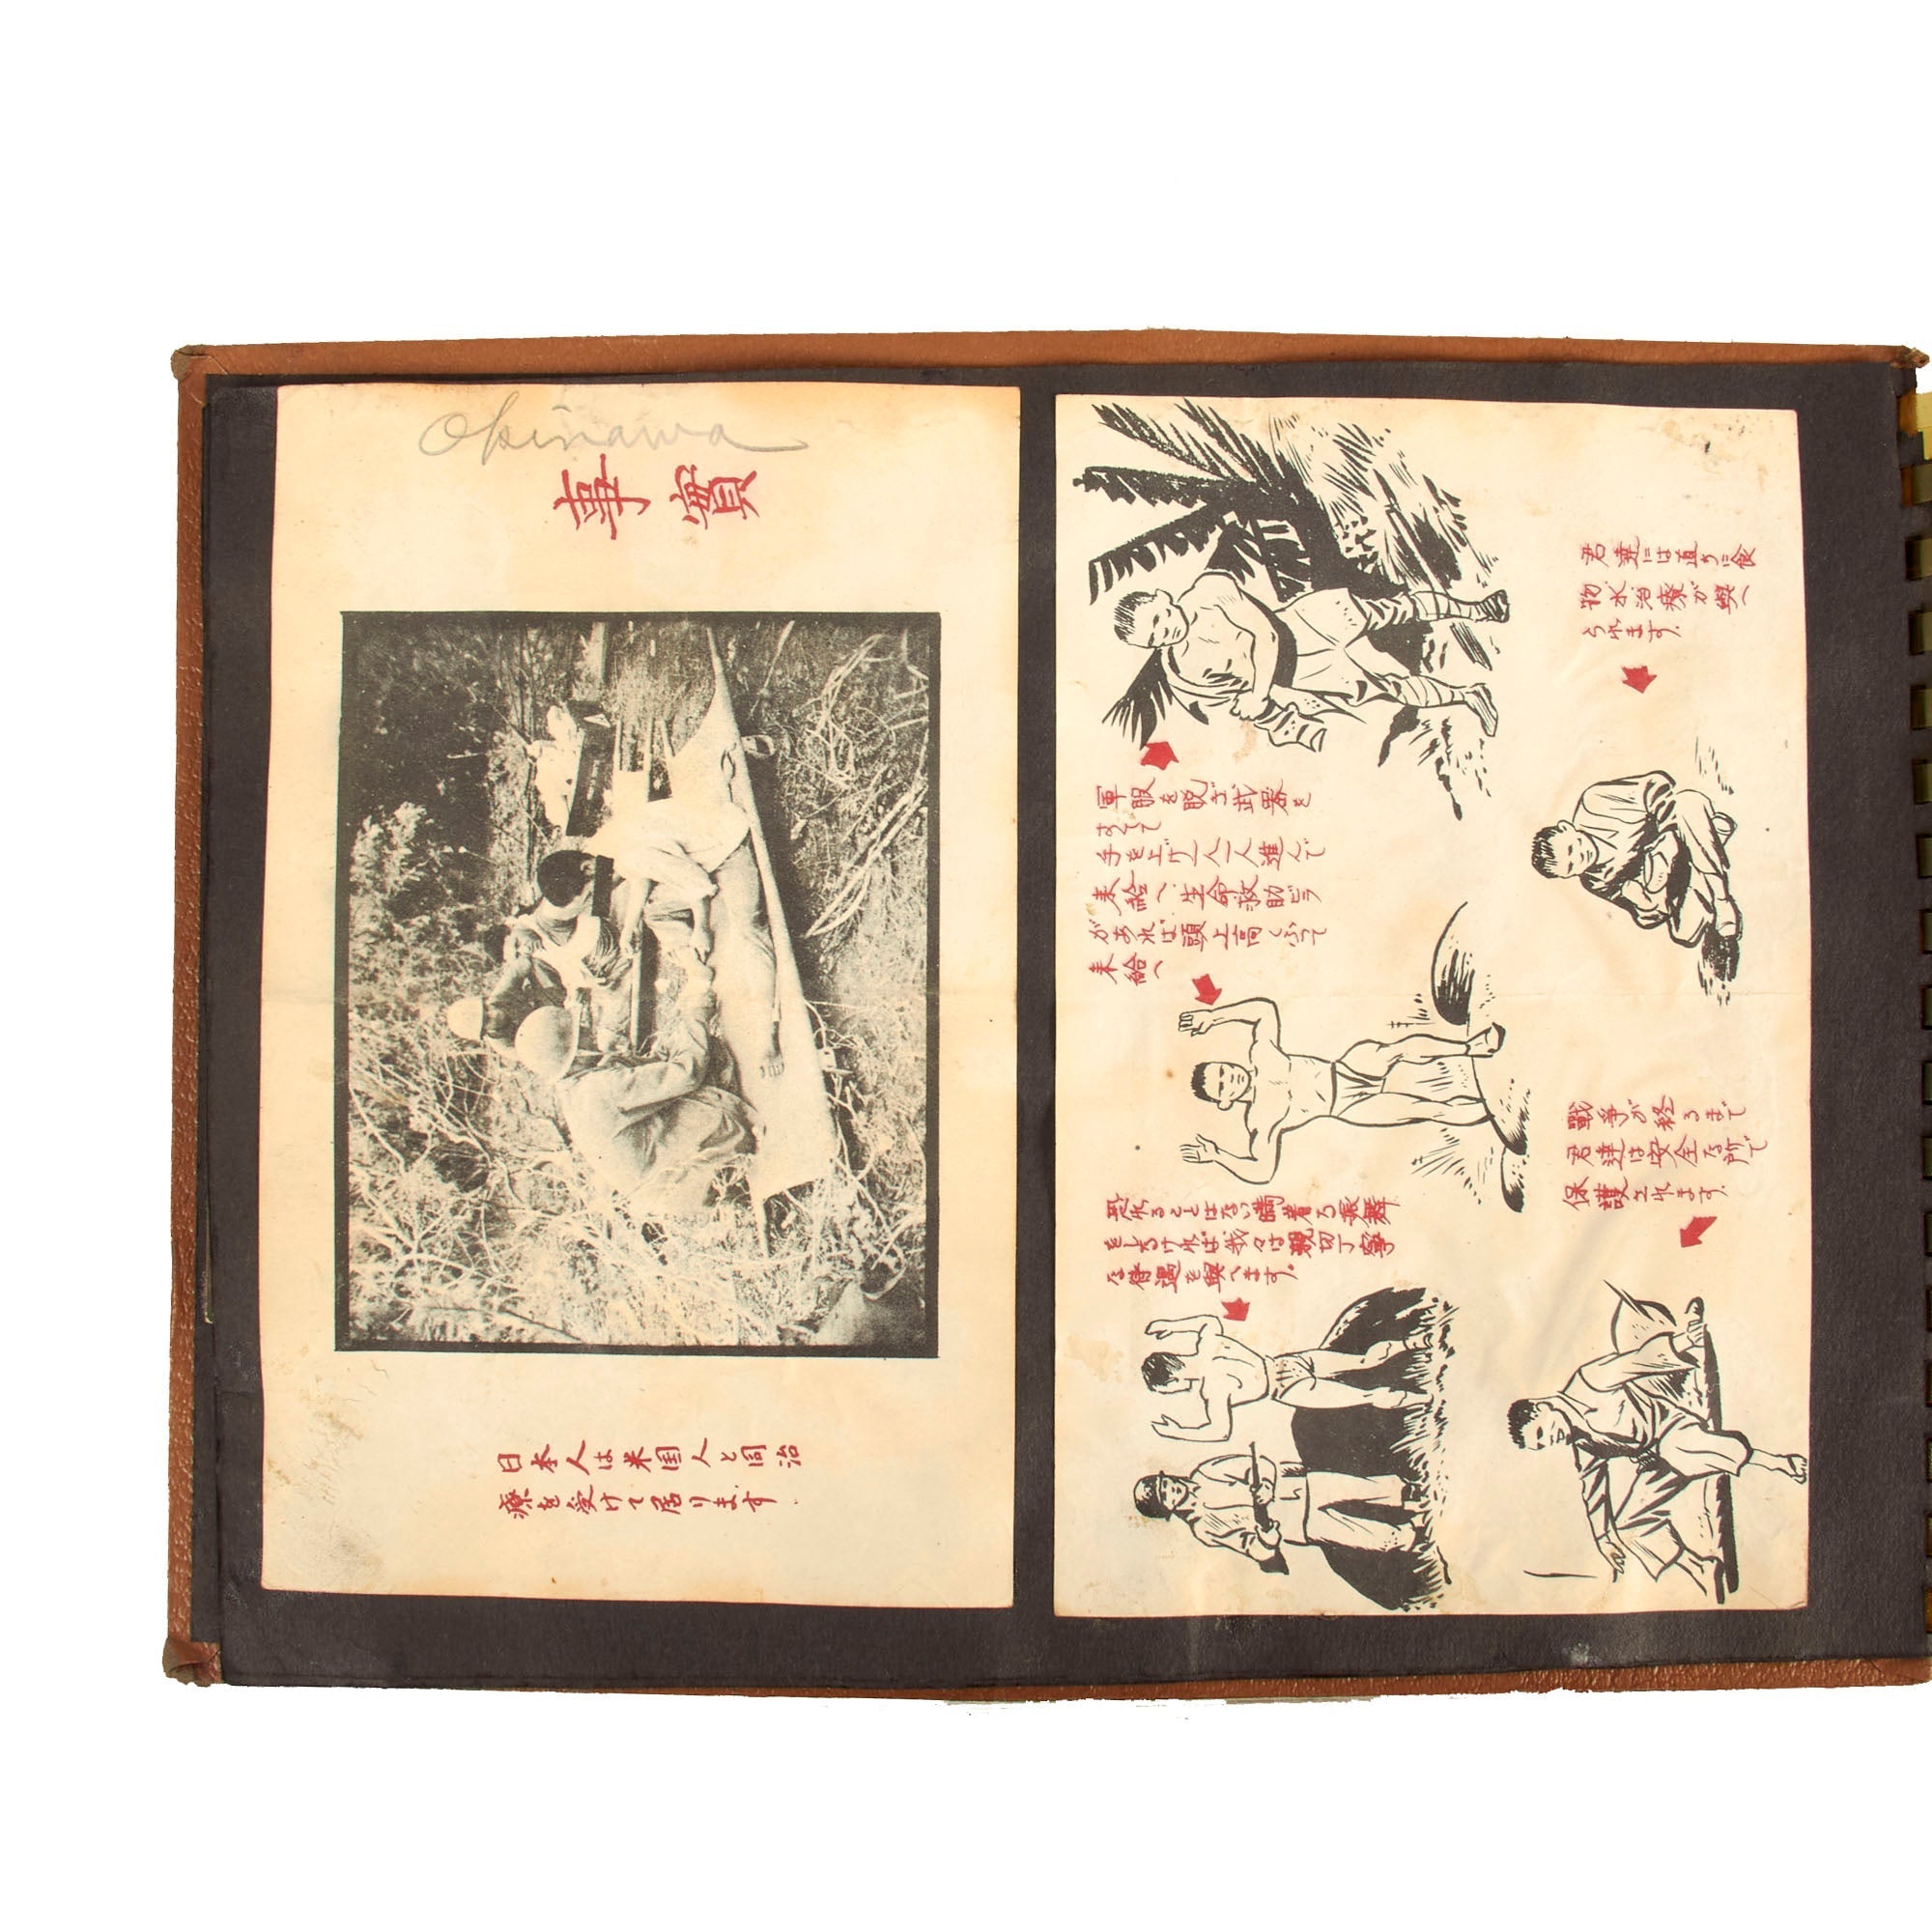 Okinawa
事實
日本人は米国人と同治
療を受けて居ります.
軍服を脱ぎ武器を
すてて
手を上げ一人一人進んで
来給へ生命救助ビラ
があれば頭上高くふって
来給へ
恐れることはない瞞着な振舞
をしなければ我々は親切丁寧
な待遇を與へます.
君達には直ちに食
物水治療が與へ
られます.
戦争が終るまで
君達は安全な所で
保護されます.